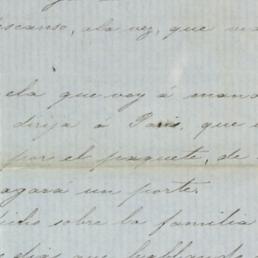 descanso, a la vez, que
ela que voy á
dirija á Paris, que
por el paquete, de
agará un porte.
dicho sobre la familia
dias que hablando